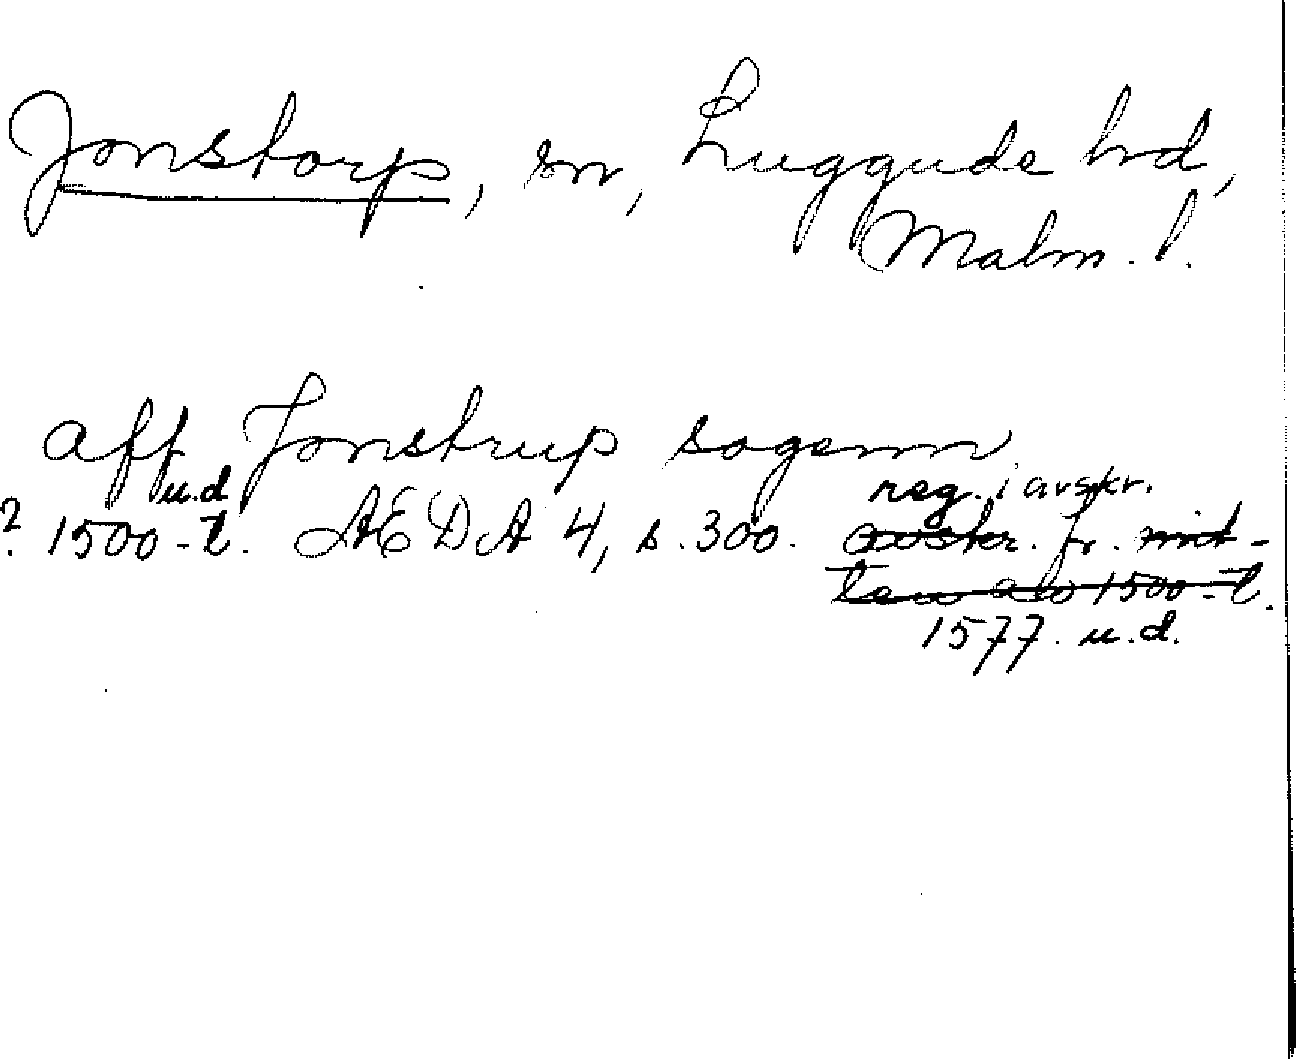 Jonstorp, sn, Luggude hd,
Malm. l.
aff Jonstrup sogenn
u.d reg. i avskr.
? 1500-t. AEDA 4, s. 300. avskr. fr. mit-
ten av 1500-t.
1577. u.d.